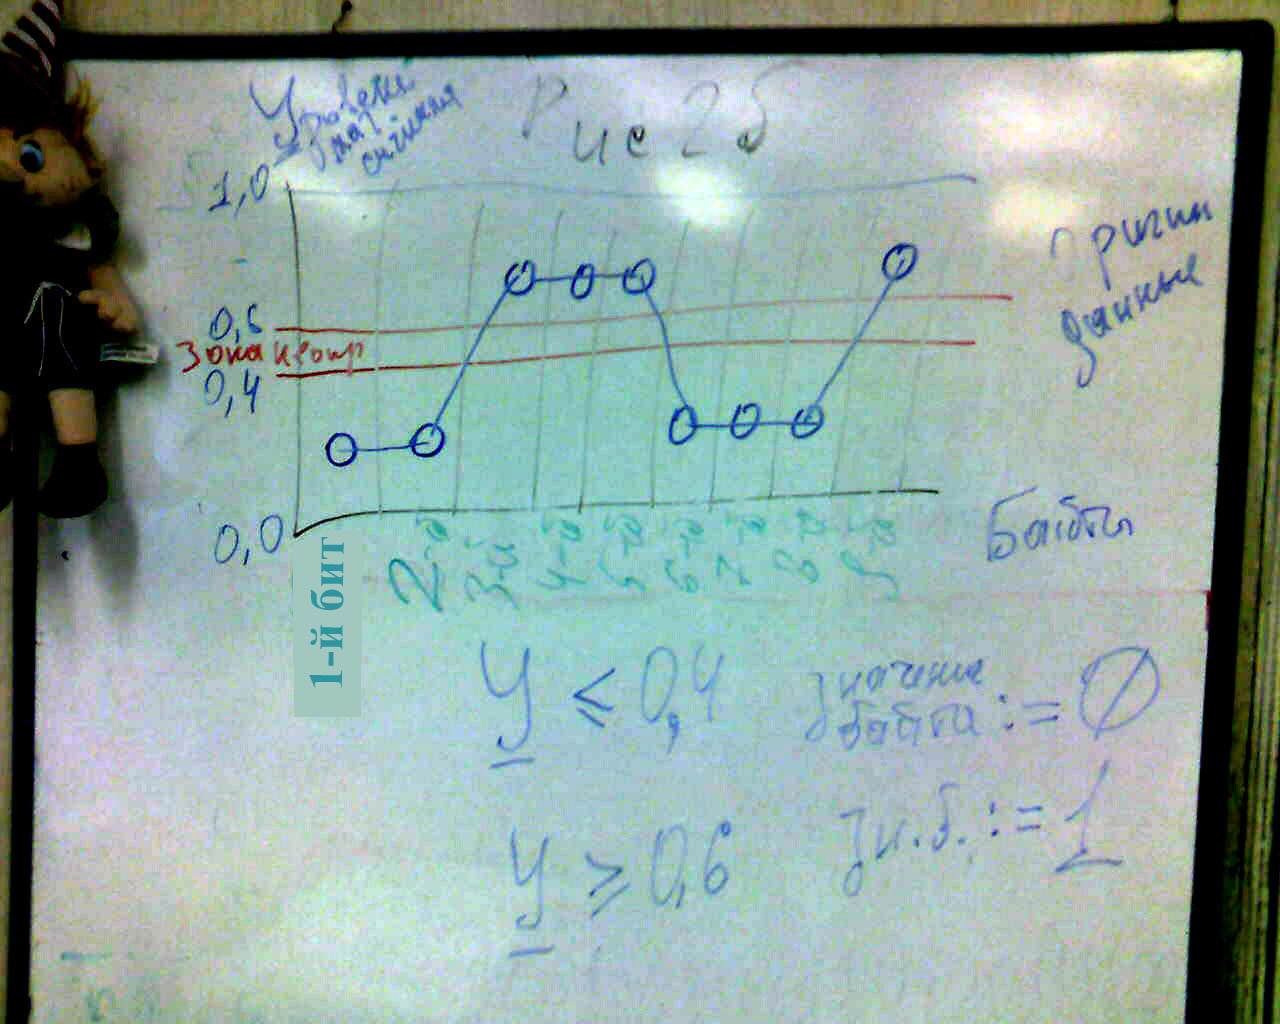 Рис 2б
Уровень
маг
сигнала
1,0
0,6
Зона неопр
0,4
0,0
Оригин
данные
Байты
1-й бит
2-й
3-й
4-й
5-й
6-й
7-й
8-й
9-й
У ≤ 0,4
Значение
байта := 0
У ≥ 0,6
Зн.б. := 1